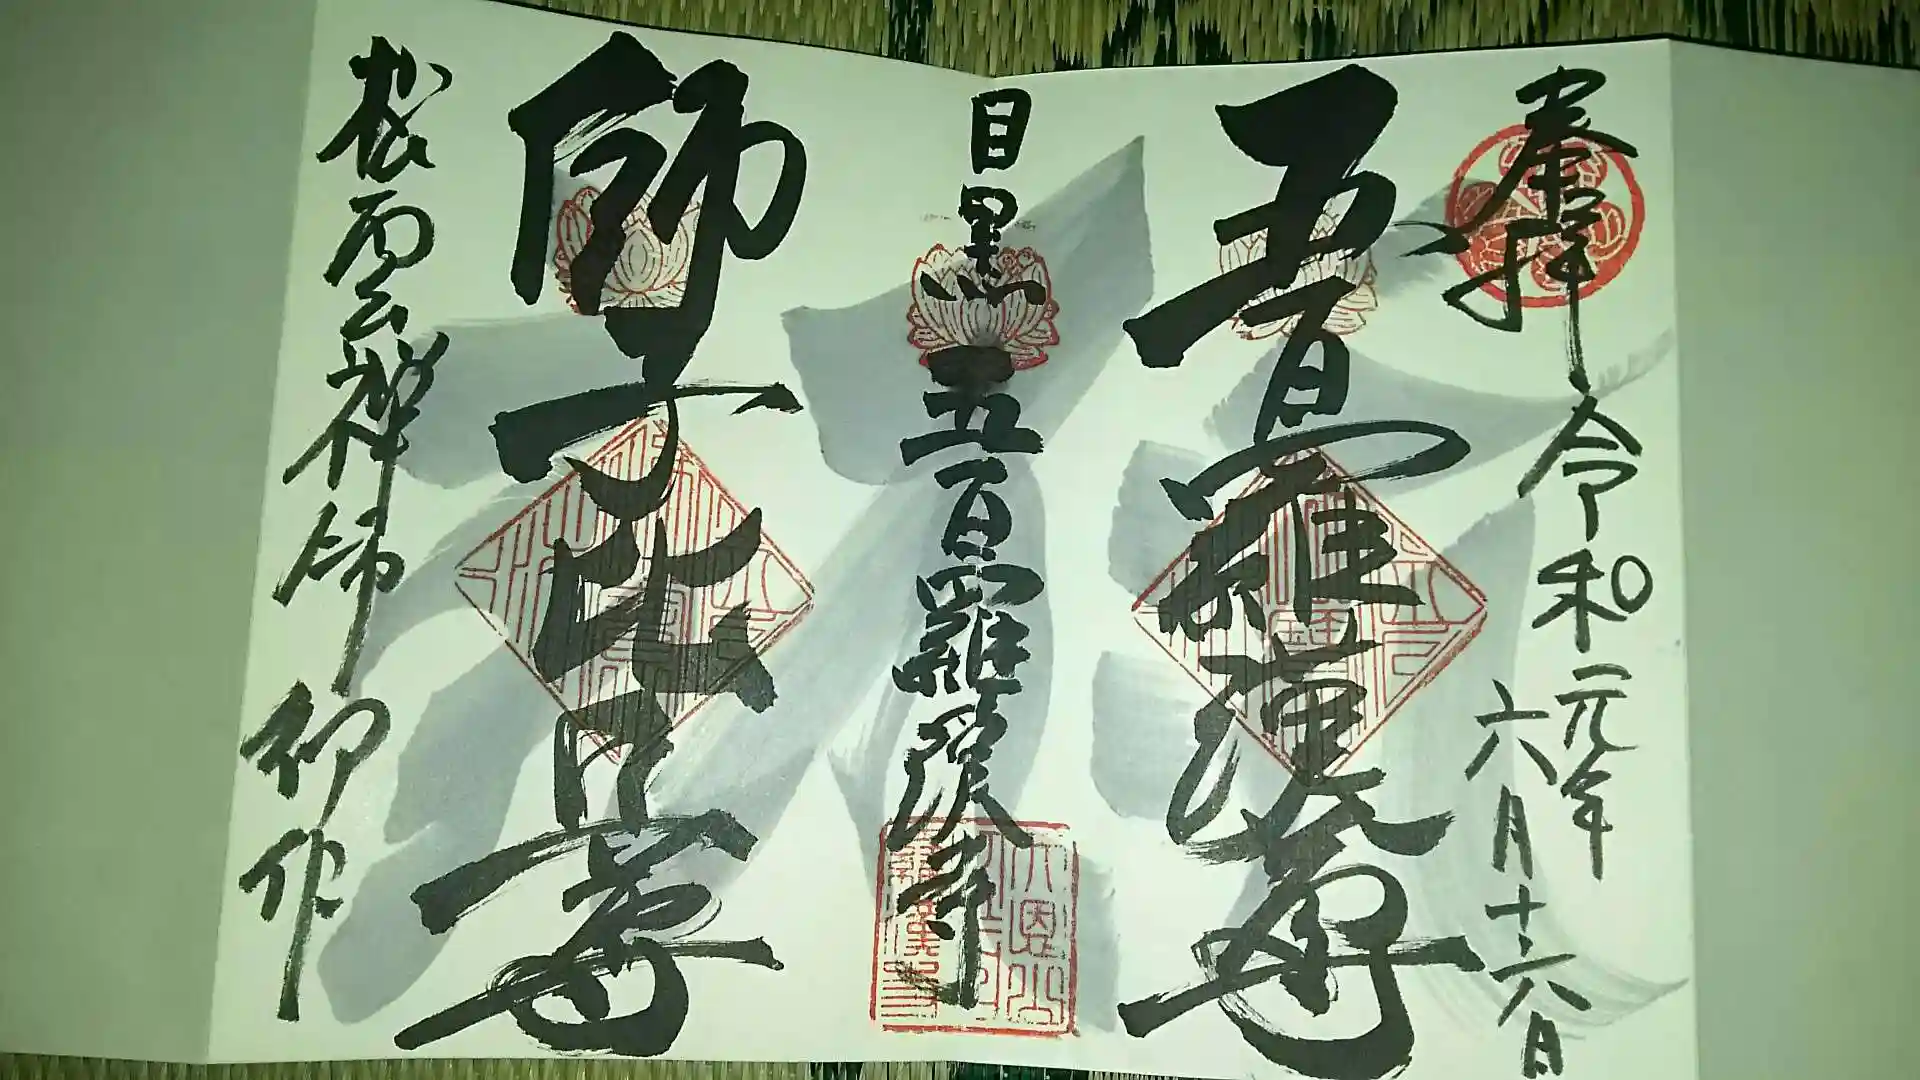 奉拝
令和元年
六月十六日
五百羅漢尊
目黒
五百羅漢寺
師子比丘尊
松雲禅師御作